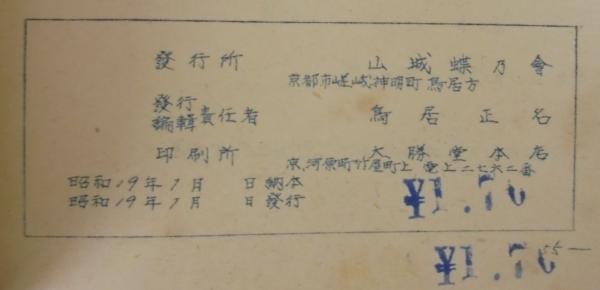 發行所 山城蝶乃會
京都市嵯峨神明町鳥居方
發行
編輯責任者 鳥居正名
印刷所 大勝堂本店
京、河原町竹屋町上 電上二七六二番
昭和19年1月 日納本
昭和19年1月 日發行
¥1.70
¥1.70